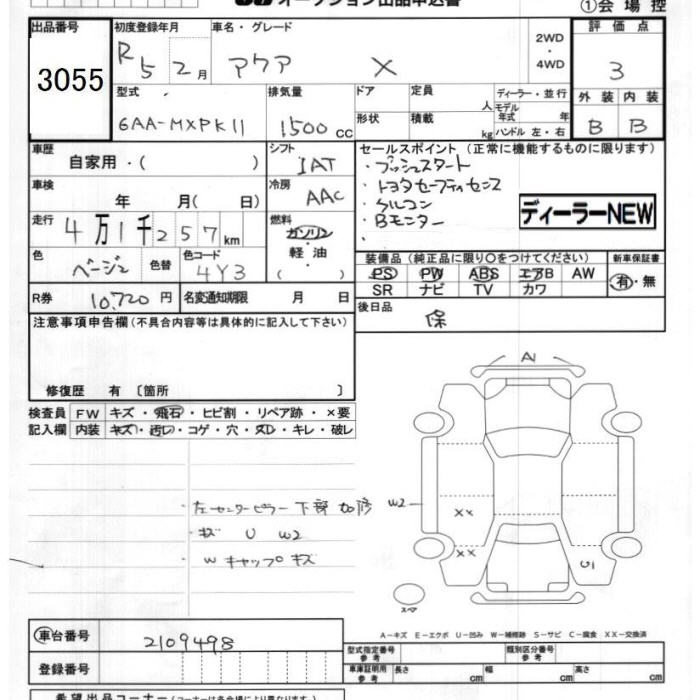 オークション出品申込書
①会場控
出品番号
3055
初度登録年月
R5 2月
車名・グレード
アクア X
2WD
・
4WD
評価点
3
型式
6AA-MXPK11
排気量
1500 cc
ドア
定員
人
ディーラー・並行
モデル
年式 年
形状
積載
kg
ハンドル 左・右
外装 内装
B B
車歴
自家用・( )
シフト
IAT
セールスポイント (正常に機能するものに限ります)
・プッシュスタート
・トヨタセーフティセンス
・クルコン
・Bモニター
・
ディーラーNEW
車検
年 月( 日)
冷房
AAC
走行
4万1千257km
燃料
ガソリン
・
軽油
( )
色
ベージュ
色替
色コード
4Y3
装備品 (純正品に限り〇をつけてください)
PS PW ABS エアB AW
SR ナビ TV カワ
新車保証書
有・無
R券
10,720円
名変通知期限 月 日
後日品
保
注意事項申告欄(不具合内容等は具体的に記入して下さい)
修復歴 有 〔箇所 〕
検査員
記入欄
FW キズ・飛石・ヒビ割・リペア跡・×要
内装 キズ・汚レ・コゲ・穴・ヌレ・キレ・破レ
左センターピラー下部 加修
キズ U W2
Wキャップ キズ
A1
W2
XX
XX
U1
スペア
A−キズ E−エクボ U−凹み W−補修跡 S−サビ C−腐食 XX−交換済
車台番号
2109498
登録番号
型式指定番号
参考
類別区分番号
参考
車庫証明用
参考
長さ cm
幅 cm
高さ cm
希望出品コーナー